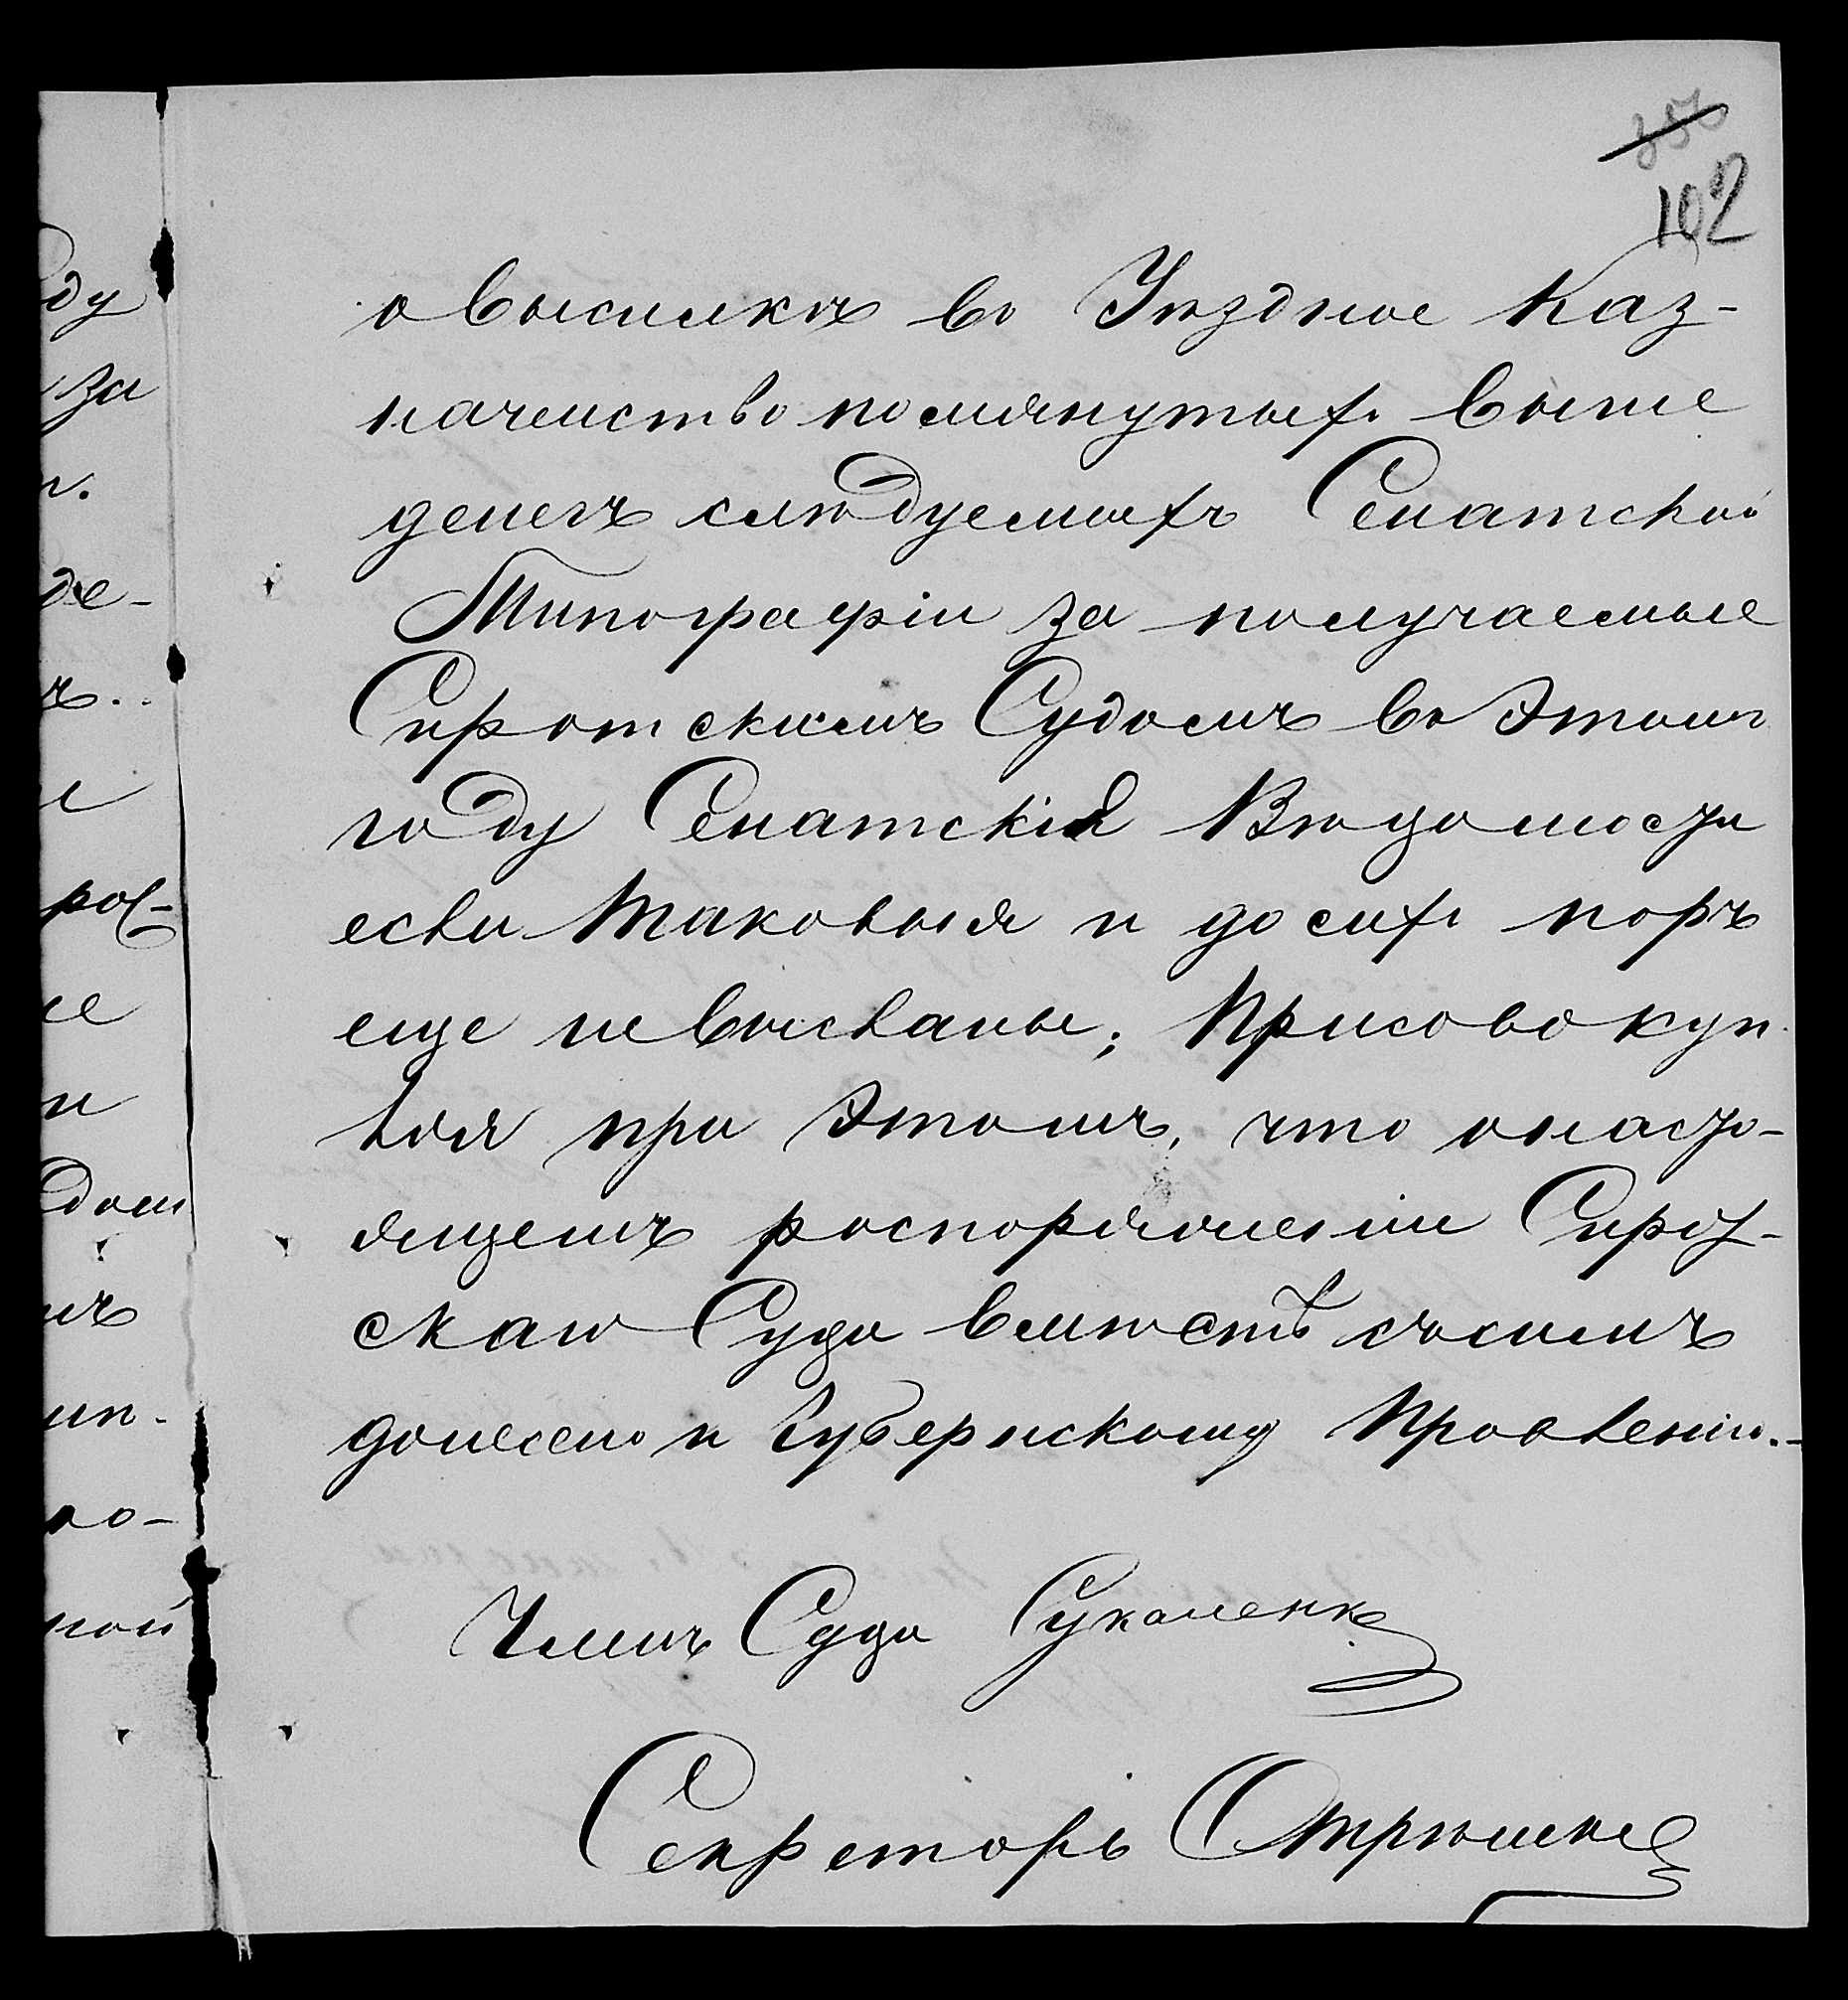 102
о высылкѣ во Уѣздное Каз-
начейство помянутыхъ выше
денегъ слѣдуемыхъ Сенатской
Типографіи за получаемые
Сиротскимъ Судомъ во этомъ
году Сенатскія Вѣдомости
если таковыя и до сихъ поръ
еще невысланы; присовокуп-
ляя при этомъ, что онасто-
ящемъ роспоряженіи Сирот-
скаго Суда вмѣстѣ съсимъ
донесено и Губернскому Провленію.-
Членъ Суда
Секреторь
ду
за
де-
ъ..
рос-
не
и
дом
мъ
ип-
но-
ной